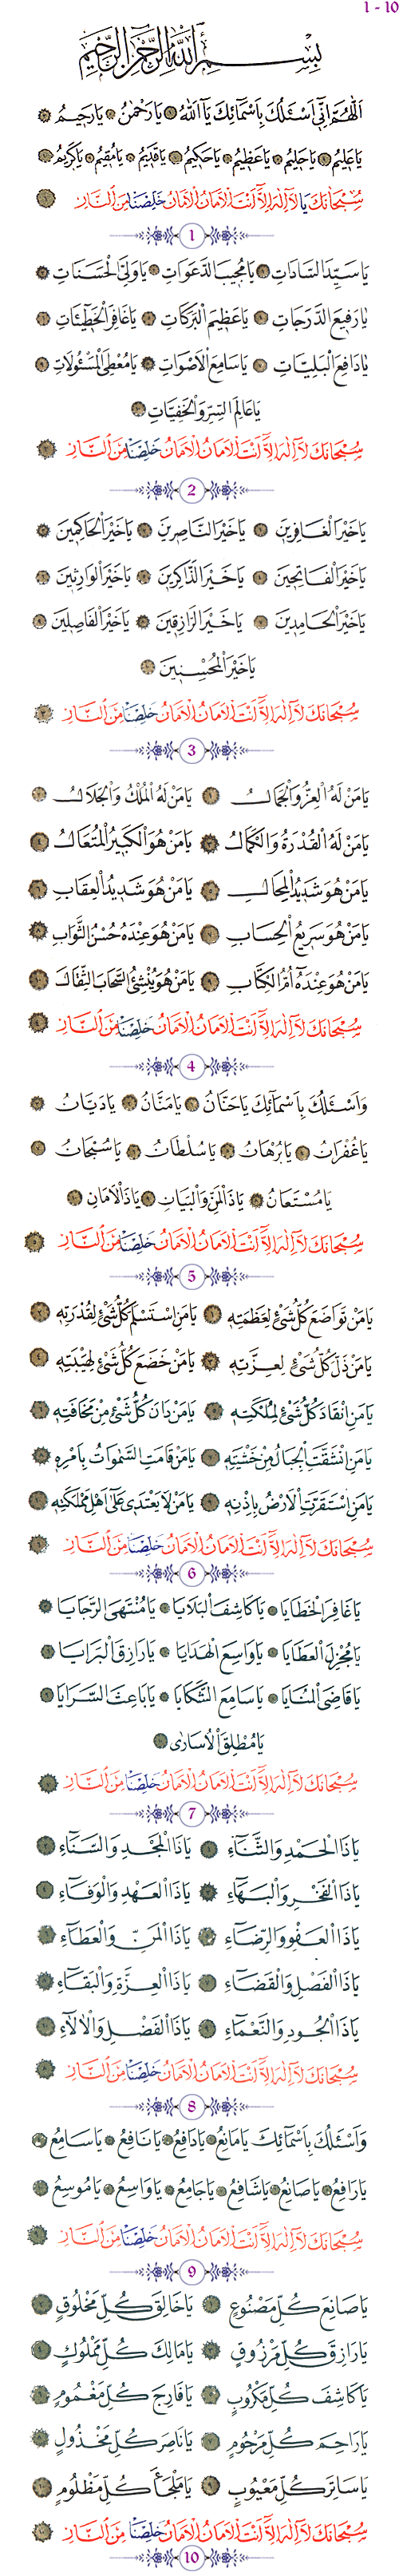 1 - 10
بِسْمِ اللهِ الرَّحْمٰنِ الرَّحِيمِ
اَللّٰهُمَّ اِنّٖى اَسْئَلُكَ بِاَسْمَائِكَ يَا اَللهُ ١ يَا رَحْمٰنُ ٢ يَا رَحٖيمُ ٣
يَا عَلٖيمُ ٤ يَا حَلٖيمُ ٥ يَا عَظٖيمُ ٦ يَا حَكٖيمُ ٧ يَا قَدٖيمُ ٨ يَا مُقٖيمُ ٩ يَا كَرٖيمُ ١٠
سُبْحَانَكَ يَا لَا اِلٰهَ اِلَّا اَنْتَ الْاَمَانُ الْاَمَانُ خَلِّصْنَا مِنَ النَّارِ ١
1
يَا سَيِّدَ السَّادَاتِ ١ يَا مُجٖيبَ الدَّعَوَاتِ ٢ يَا وَلِىَّ الْحَسَنَاتِ ٣
يَا رَفٖيعَ الدَّرَجَاتِ ٤ يَا عَظٖيمَ الْبَرَكَاتِ ٥ يَا غَافِرَ الْخَطٖٓيئَاتِ ٦
يَا دَافِعَ الْبَلِيَّاتِ ٧ يَا سَامِعَ الْاَصْوَاتِ ٨ يَا مُعْطِىَ الْمَسْئُولَاتِ ٩
يَا عَالِمَ السِّرِّ وَالْخَفِيَّاتِ ١٠
سُبْحَانَكَ لَا اِلٰهَ اِلَّا اَنْتَ الْاَمَانُ الْاَمَانُ خَلِّصْنَا مِنَ النَّارِ ٢
2
يَا خَيْرَ الْغَافِرٖينَ ١ يَا خَيْرَ النَّاصِرٖينَ ٢ يَا خَيْرَ الْحَاكِمٖينَ ٣
يَا خَيْرَ الْفَاتِحٖينَ ٤ يَا خَيْرَ الذَّاكِرٖينَ ٥ يَا خَيْرَ الْوَارِثٖينَ ٦
يَا خَيْرَ الْحَامِدٖينَ ٧ يَا خَيْرَ الرَّازِقٖينَ ٨ يَا خَيْرَ الْفَاصِلٖينَ ٩
يَا خَيْرَ الْمُحْسِنٖينَ ١٠
سُبْحَانَكَ لَا اِلٰهَ اِلَّا اَنْتَ الْاَمَانُ الْاَمَانُ خَلِّصْنَا مِنَ النَّارِ ٣
3
يَا مَنْ لَهُ الْعِزُّ وَالْجَمَالُ ١ يَا مَنْ لَهُ الْمُلْكُ وَالْجَلَالُ ٢
يَا مَنْ لَهُ الْقُدْرَةُ وَالْكَمَالُ ٣ يَا مَنْ هُوَ الْكَبٖيرُ الْمُتَعَالُ ٤
يَا مَنْ هُوَ شَدٖيدُ الْمِحَالِ ٥ يَا مَنْ هُوَ شَدٖيدُ الْعِقَابِ ٦
يَا مَنْ هُوَ سَرٖيعُ الْحِسَابِ ٧ يَا مَنْ هُوَ عِنْدَهُ حُسْنُ الثَّوَابِ ٨
يَا مَنْ هُوَ عِنْدَهُٓ اُمُّ الْكِتَابِ ٩ يَا مَنْ هُوَ يُنْشِئُ السَّحَابَ الثِّقَالَ ١٠
سُبْحَانَكَ لَا اِلٰهَ اِلَّا اَنْتَ الْاَمَانُ الْاَمَانُ خَلِّصْنَا مِنَ النَّارِ ٤
4
وَاَسْئَلُكَ بِاَسْمَائِكَ يَا حَنَّانُ ١ يَا مَنَّانُ ٢ يَا دَيَّانُ ٣
يَا غُفْرَانُ ٤ يَا بُرْهَانُ ٥ يَا سُلْطَانُ ٦ يَا سُبْحَانُ ٧
يَا مُسْتَعَانُ ٨ يَا ذَا الْمَنِّ وَالْبَيَانِ ٩ يَا ذَا الْاَمَانِ ١٠
سُبْحَانَكَ لَا اِلٰهَ اِلَّا اَنْتَ الْاَمَانُ الْاَمَانُ خَلِّصْنَا مِنَ النَّارِ ٥
5
يَا مَنْ تَوَاضَعَ كُلُّ شَىْءٍ لِعَظَمَتِهٖ ١ يَا مَنِ اسْتَسْلَمَ كُلُّ شَىْءٍ لِقُدْرَتِهٖ ٢
يَا مَنْ ذَلَّ كُلُّ شَىْءٍ لِعِزَّتِهٖ ٣ يَا مَنْ خَضَعَ كُلُّ شَىْءٍ لِهَيْبَتِهٖ ٤
يَا مَنِ انْقَادَ كُلُّ شَىْءٍ لِمُلْكَتِهٖ ٥ يَا مَنْ دَانَ كُلُّ شَىْءٍ مِنْ مَخَافَتِهٖ ٦
يَا مَنِ انْشَقَّتِ الْجِبَالُ مِنْ خَشْيَتِهٖ ٧ يَا مَنْ قَامَتِ السَّمٰوَاتُ بِاَمْرِهٖ ٨
يَا مَنِ اسْتَقَرَّتِ الْاَرْضُ بِاِذْنِهٖ ٩ يَا مَنْ لَا يَعْتَدٖى عَلٰٓى اَهْلِ مَمْلَكَتِهٖ ١٠
سُبْحَانَكَ لَا اِلٰهَ اِلَّا اَنْتَ الْاَمَانُ الْاَمَانُ خَلِّصْنَا مِنَ النَّارِ ٦
6
يَا غَافِرَ الْخَطَايَا ١ يَا كَاشِفَ الْبَلَايَا ٢ يَا مُنْتَهَى الرَّجَايَا ٣
يَا مُجْزِلَ الْعَطَايَا ٤ يَا وَاسِعَ الْهَدَايَا ٥ يَا رَازِقَ الْبَرَايَا ٦
يَا قَاضِىَ الْمُنَايَا ٧ يَا سَامِعَ الشَّكَايَا ٨ يَا بَاعِثَ السَّرَايَا ٩
يَا مُطْلِقَ الْاُسَارٰى ١٠
سُبْحَانَكَ لَا اِلٰهَ اِلَّا اَنْتَ الْاَمَانُ الْاَمَانُ خَلِّصْنَا مِنَ النَّارِ ٧
7
يَا ذَا الْحَمْدِ وَالثَّنَاءِ ١ يَا ذَا الْمَجْدِ وَالسَّنَاءِ ٢
يَا ذَا الْفَخْرِ وَالْبَهَاءِ ٣ يَا ذَا الْعَهْدِ وَالْوَفَاءِ ٤
يَا ذَا الْعَفْوِ وَالرِّضَاءِ ٥ يَا ذَا الْمَنِّ وَالْعَطَاءِ ٦
يَا ذَا الْفَصْلِ وَالْقَضَاءِ ٧ يَا ذَا الْعِزَّةِ وَالْبَقَاءِ ٨
يَا ذَا الْجُودِ وَالنَّعْمَاءِ ٩ يَا ذَا الْفَضْلِ وَالْاٰلَاءِ ١٠
سُبْحَانَكَ لَا اِلٰهَ اِلَّا اَنْتَ الْاَمَانُ الْاَمَانُ خَلِّصْنَا مِنَ النَّارِ ٨
8
وَاَسْئَلُكَ بِاَسْمَائِكَ يَا مَانِعُ ١ يَا دَافِعُ ٢ يَا نَافِعُ ٣ يَا سَامِعُ ٤
يَا رَافِعُ ٥ يَا صَانِعُ ٦ يَا شَافِعُ ٧ يَا جَامِعُ ٨ يَا وَاسِعُ ٩ يَا مُوسِعُ ١٠
سُبْحَانَكَ لَا اِلٰهَ اِلَّا اَنْتَ الْاَمَانُ الْاَمَانُ خَلِّصْنَا مِنَ النَّارِ ٩
9
يَا صَانِعَ كُلِّ مَصْنُوعٍ ١ يَا خَالِقَ كُلِّ مَخْلُوقٍ ٢
يَا رَازِقَ كُلِّ مَرْزُوقٍ ٣ يَا مَالِكَ كُلِّ مَمْلُوكٍ ٤
يَا كَاشِفَ كُلِّ مَكْرُوبٍ ٥ يَا فَارِجَ كُلِّ مَغْمُومٍ ٦
يَا رَاحِمَ كُلِّ مَرْحُومٍ ٧ يَا نَاصِرَ كُلِّ مَخْذُولٍ ٨
يَا سَاتِرَ كُلِّ مَعْيُوبٍ ٩ يَا مَلْجَأَ كُلِّ مَظْلُومٍ ١٠
سُبْحَانَكَ لَا اِلٰهَ اِلَّا اَنْتَ الْاَمَانُ الْاَمَانُ خَلِّصْنَا مِنَ النَّارِ ١٠
10